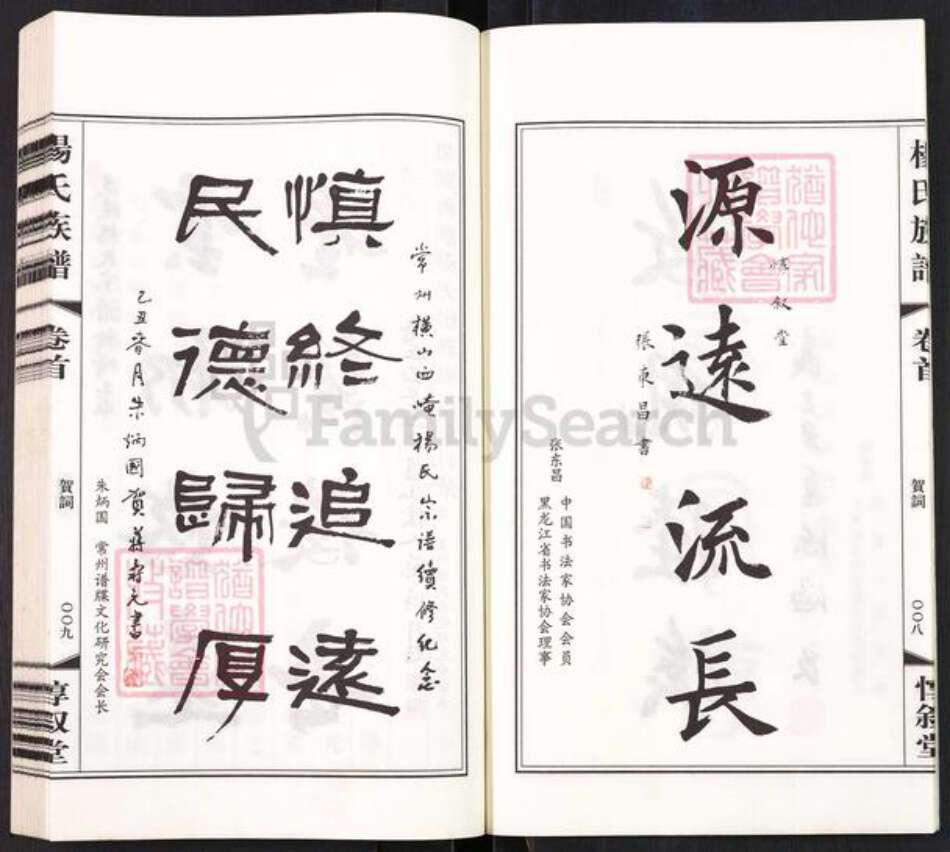 楊氏族譜
卷首
賀詞
〇〇八
惇叙堂
源遠流長
惇叙堂
張東昌書
中国书法家协会会员
黑龙江省书法家协会理事
张东昌
常州橫山西崦楊氏宗譜續修纪念
慎終追遠
民德歸厚
乙丑春月朱炳國賀蔣
書
朱炳国 常州谱牒文化研究会会长
楊氏族譜
卷首
賀詞
〇〇九
惇叙堂
FamilySearch